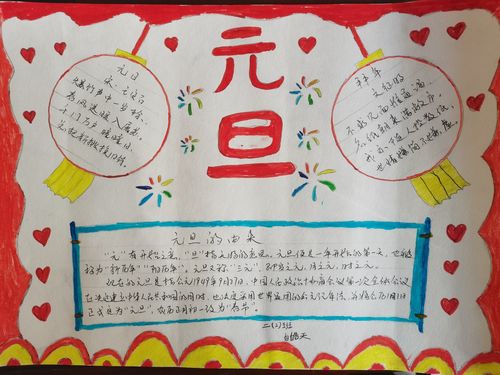 元旦
元日
宋·王安石
爆竹声中一岁除,
春风送暖入屠苏。
千门万户曈曈日,
总把新桃换旧符。
拜年
文征明
不求见面惟通谒,
名纸朝来满敝庐。
我亦随人投数纸,
世情嫌简不嫌虚。
元旦的由来
"元"有开始之意,"旦"指天明的意思。元旦便是一年开始的第一天,也被
称为"新历年""阳历年"。元旦又称"三元",即岁之元、月之元、时之元。
现在的元旦是指公元1949年9月27日,中国人民政治协商会议第一次全体会议
在决定建立中华人民共和国的同时,也决定采用世界通用的公元纪年法,并将公历1月1日
正式定为"元旦",农历正月初一改为"春节"。
二(2)班